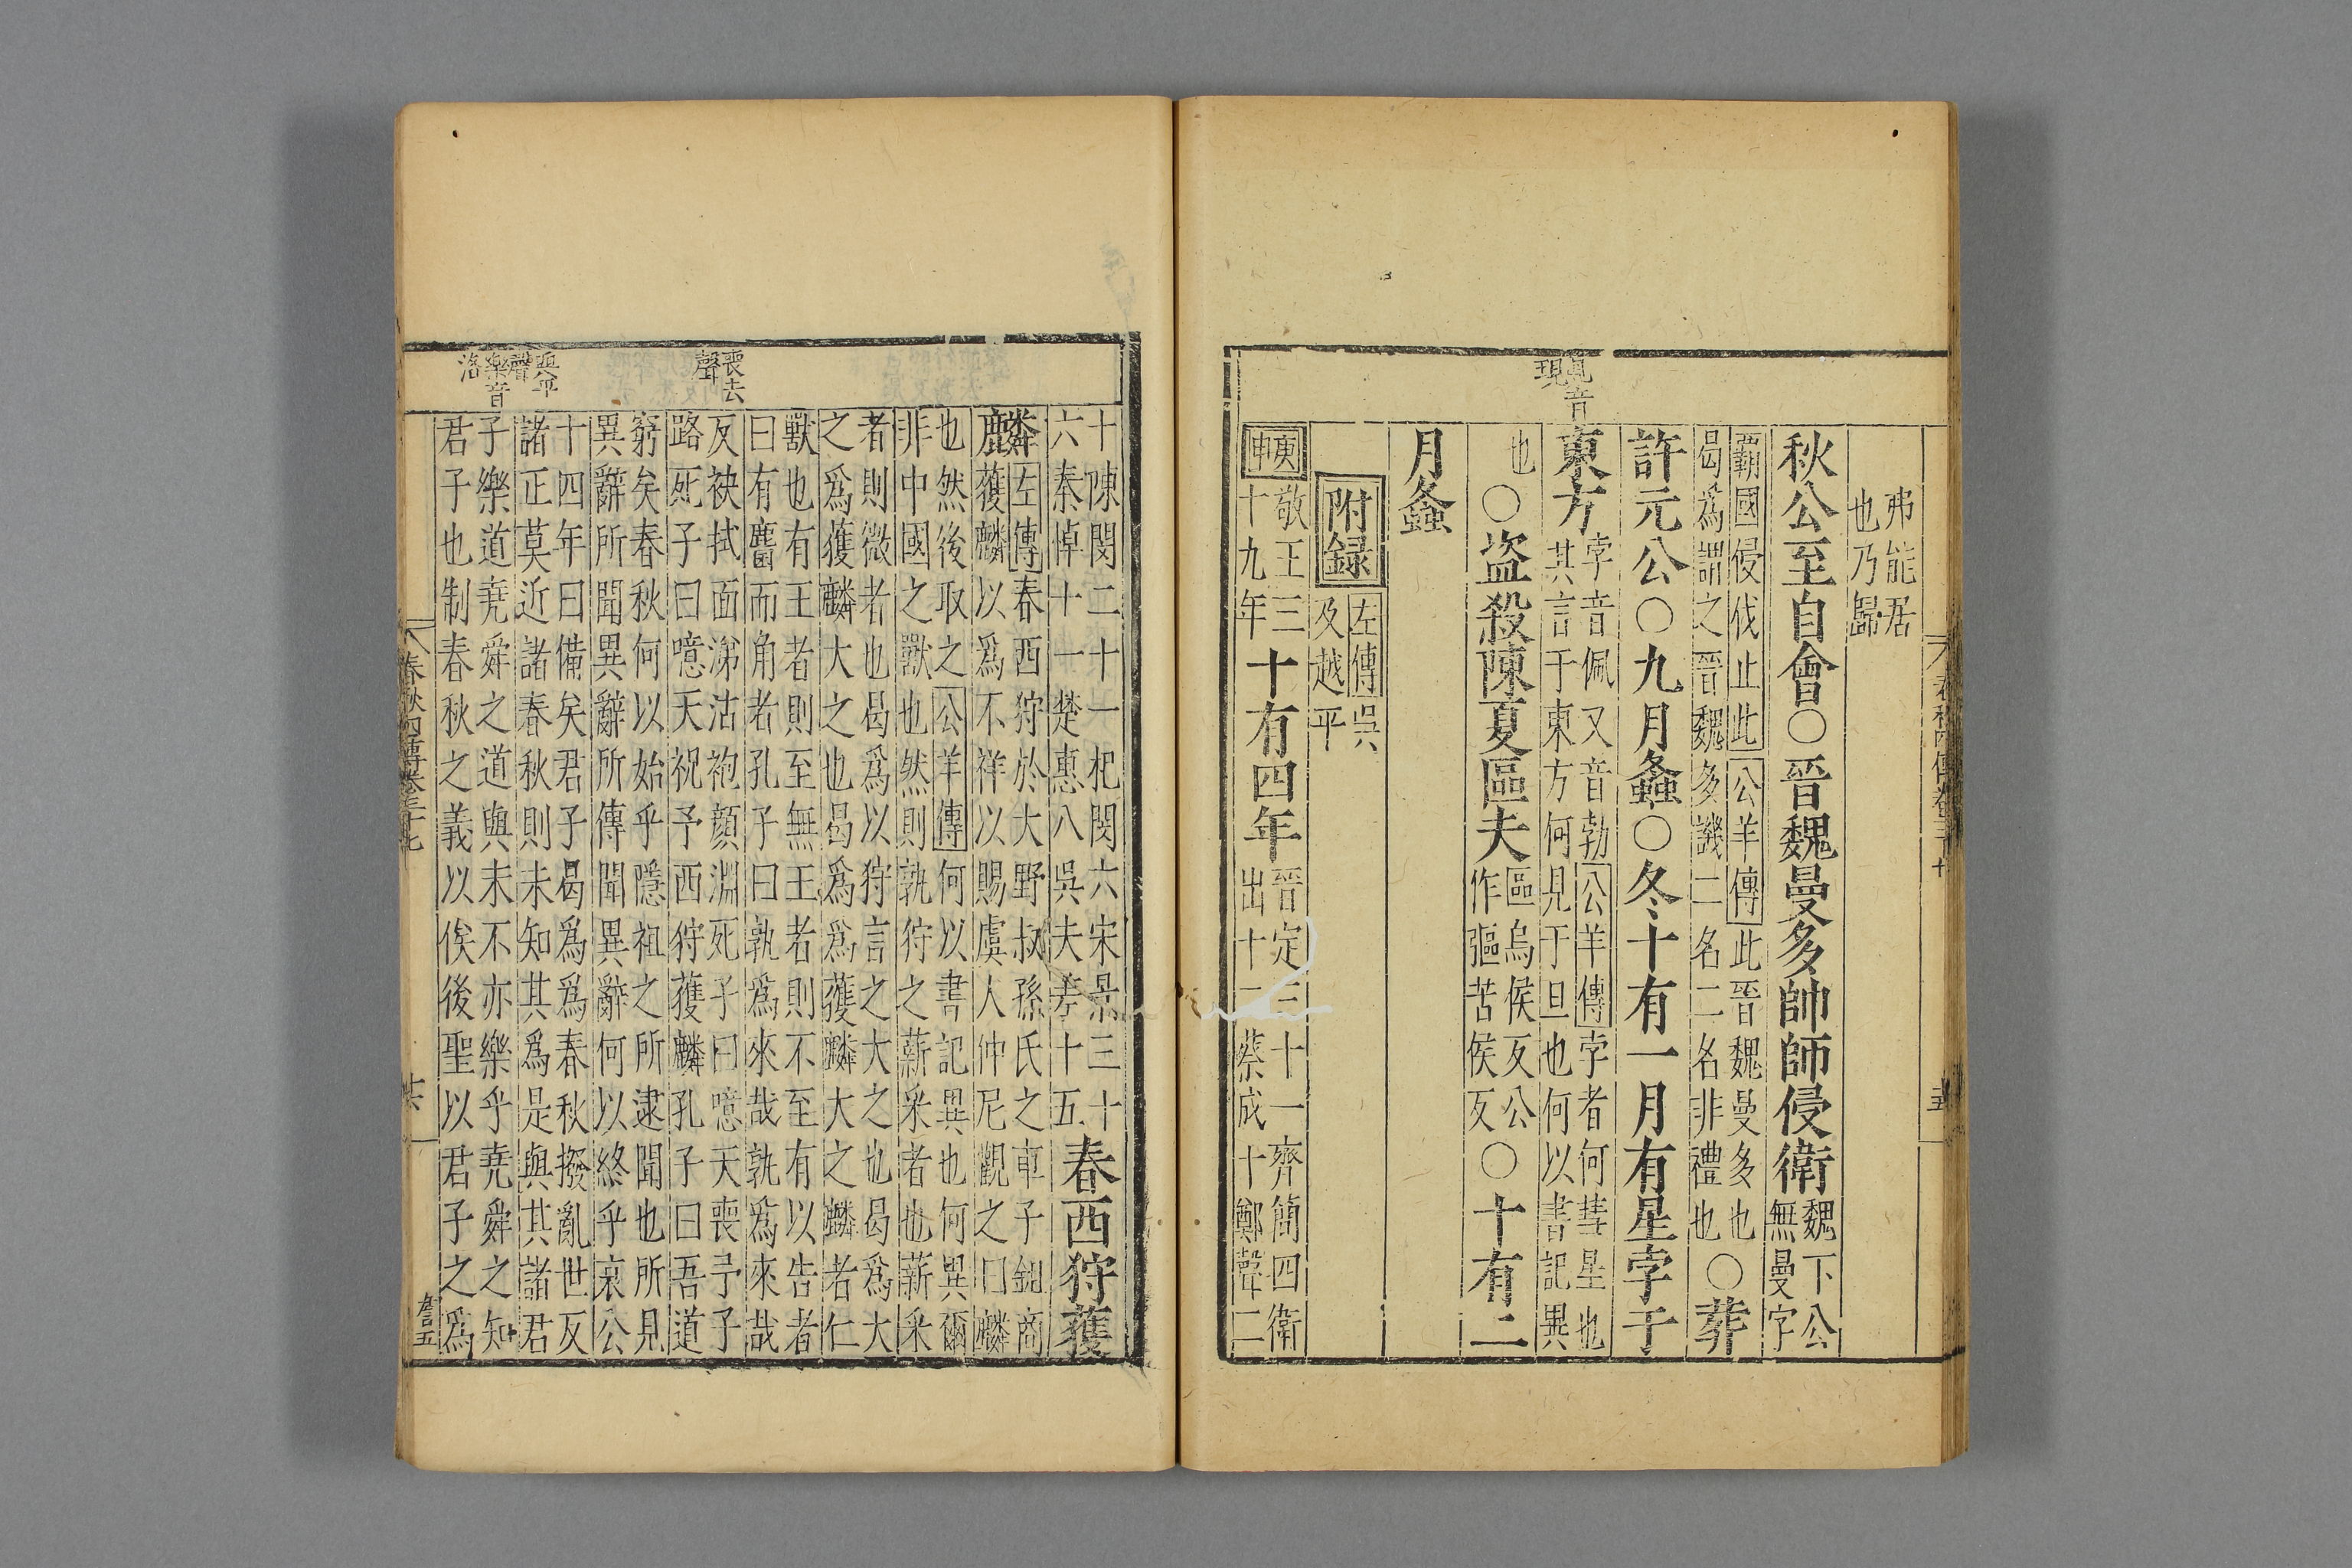 弗能居
也乃歸
秋公至自會○晉魏曼多帥師侵衛魏下公
無曼字
霸國侵伐止此公羊傳此晉魏曼多也
曷爲謂之晉魏多譏二名二名非禮也○葬
許元公○九月螽○冬十有一月有星孛于
見音
現
東方孛音佩又音勃公羊傳孛者何彗星也
其言于東方何見于旦也何以書記異
也○盜殺陳夏區夫區烏侯反公
作彄苦侯反○十有二
月螽
附録左傳吳
及越平
庚申敬王三
十九年十有四年晉定三十一齊簡四衛
出十二蔡成十鄭聲二
十陳閔二十一杞閔六宋景三十
六秦悼十一楚惠八吳夫差十五春西狩獲
麟左傳春西狩於大野叔孫氏之車子鉏商
獲麟以爲不祥以賜虞人仲尼觀之曰麟
也然後取之公羊傳何以書記異也何異爾
非中國之獸也然則孰狩之薪采者也薪采
者則微者也曷爲以狩言之大之也曷爲大
之爲獲麟大之也曷爲爲獲麟大之麟者仁
獸也有王者則至無王者則不至有以告者
曰有麏而角者孔子曰孰爲來哉孰爲來哉
喪去
聲
反袂拭面涕沾袍顏淵死子曰噫天喪予子
路死子曰噫天祝予西狩獲麟孔子曰吾道
窮矣春秋何以始乎隱祖之所逮聞也所見
異辭所聞異辭所傳聞異辭何以終乎哀公
十四年曰備矣君子曷爲爲春秋撥亂世反
諸正莫近諸春秋則未知其爲是與其諸君
與平
聲
樂音
洛
子樂道堯舜之道與末不亦樂乎堯舜之知
君子也制春秋之義以俟後聖以君子之爲
春秋四傳卷三十七
詹五